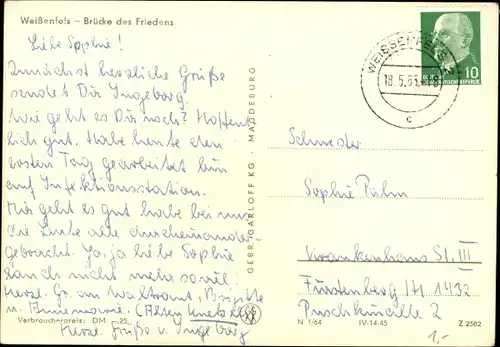 Weißenfels – Brücke des Friedens
Liebe Sophie!
Zunächst herzliche Grüße
sendet Dir Ingeborg.
Wie geht es Dir noch? Hoffent
lich gut. Habe heute den
ersten Tag gearbeitet bin
auf Infektionsstation.
Mir geht es gut habe bei uns
die Leute alle durcheinander
gebracht. Ja, ja liebe Sophie
kanch nicht mehr soviel.
Herzl. Gr. an Waltraut, Brigitte
u. Annemarie.
Herzl. Grüße v. Ingeborg
Verbraucherpreis: DM -,25
GEBR. GARLOFF KG · MAGDEBURG
WEISSENFELS
18.5.65
c
10
DEUTSCHE
DEMOKRATISCHE REPUBLIK
Schwester
Sophie
Krankenhaus St. III
Fürstenberg/H 1432
2
N 1/64 IV-14-45 Z 2582
1,-